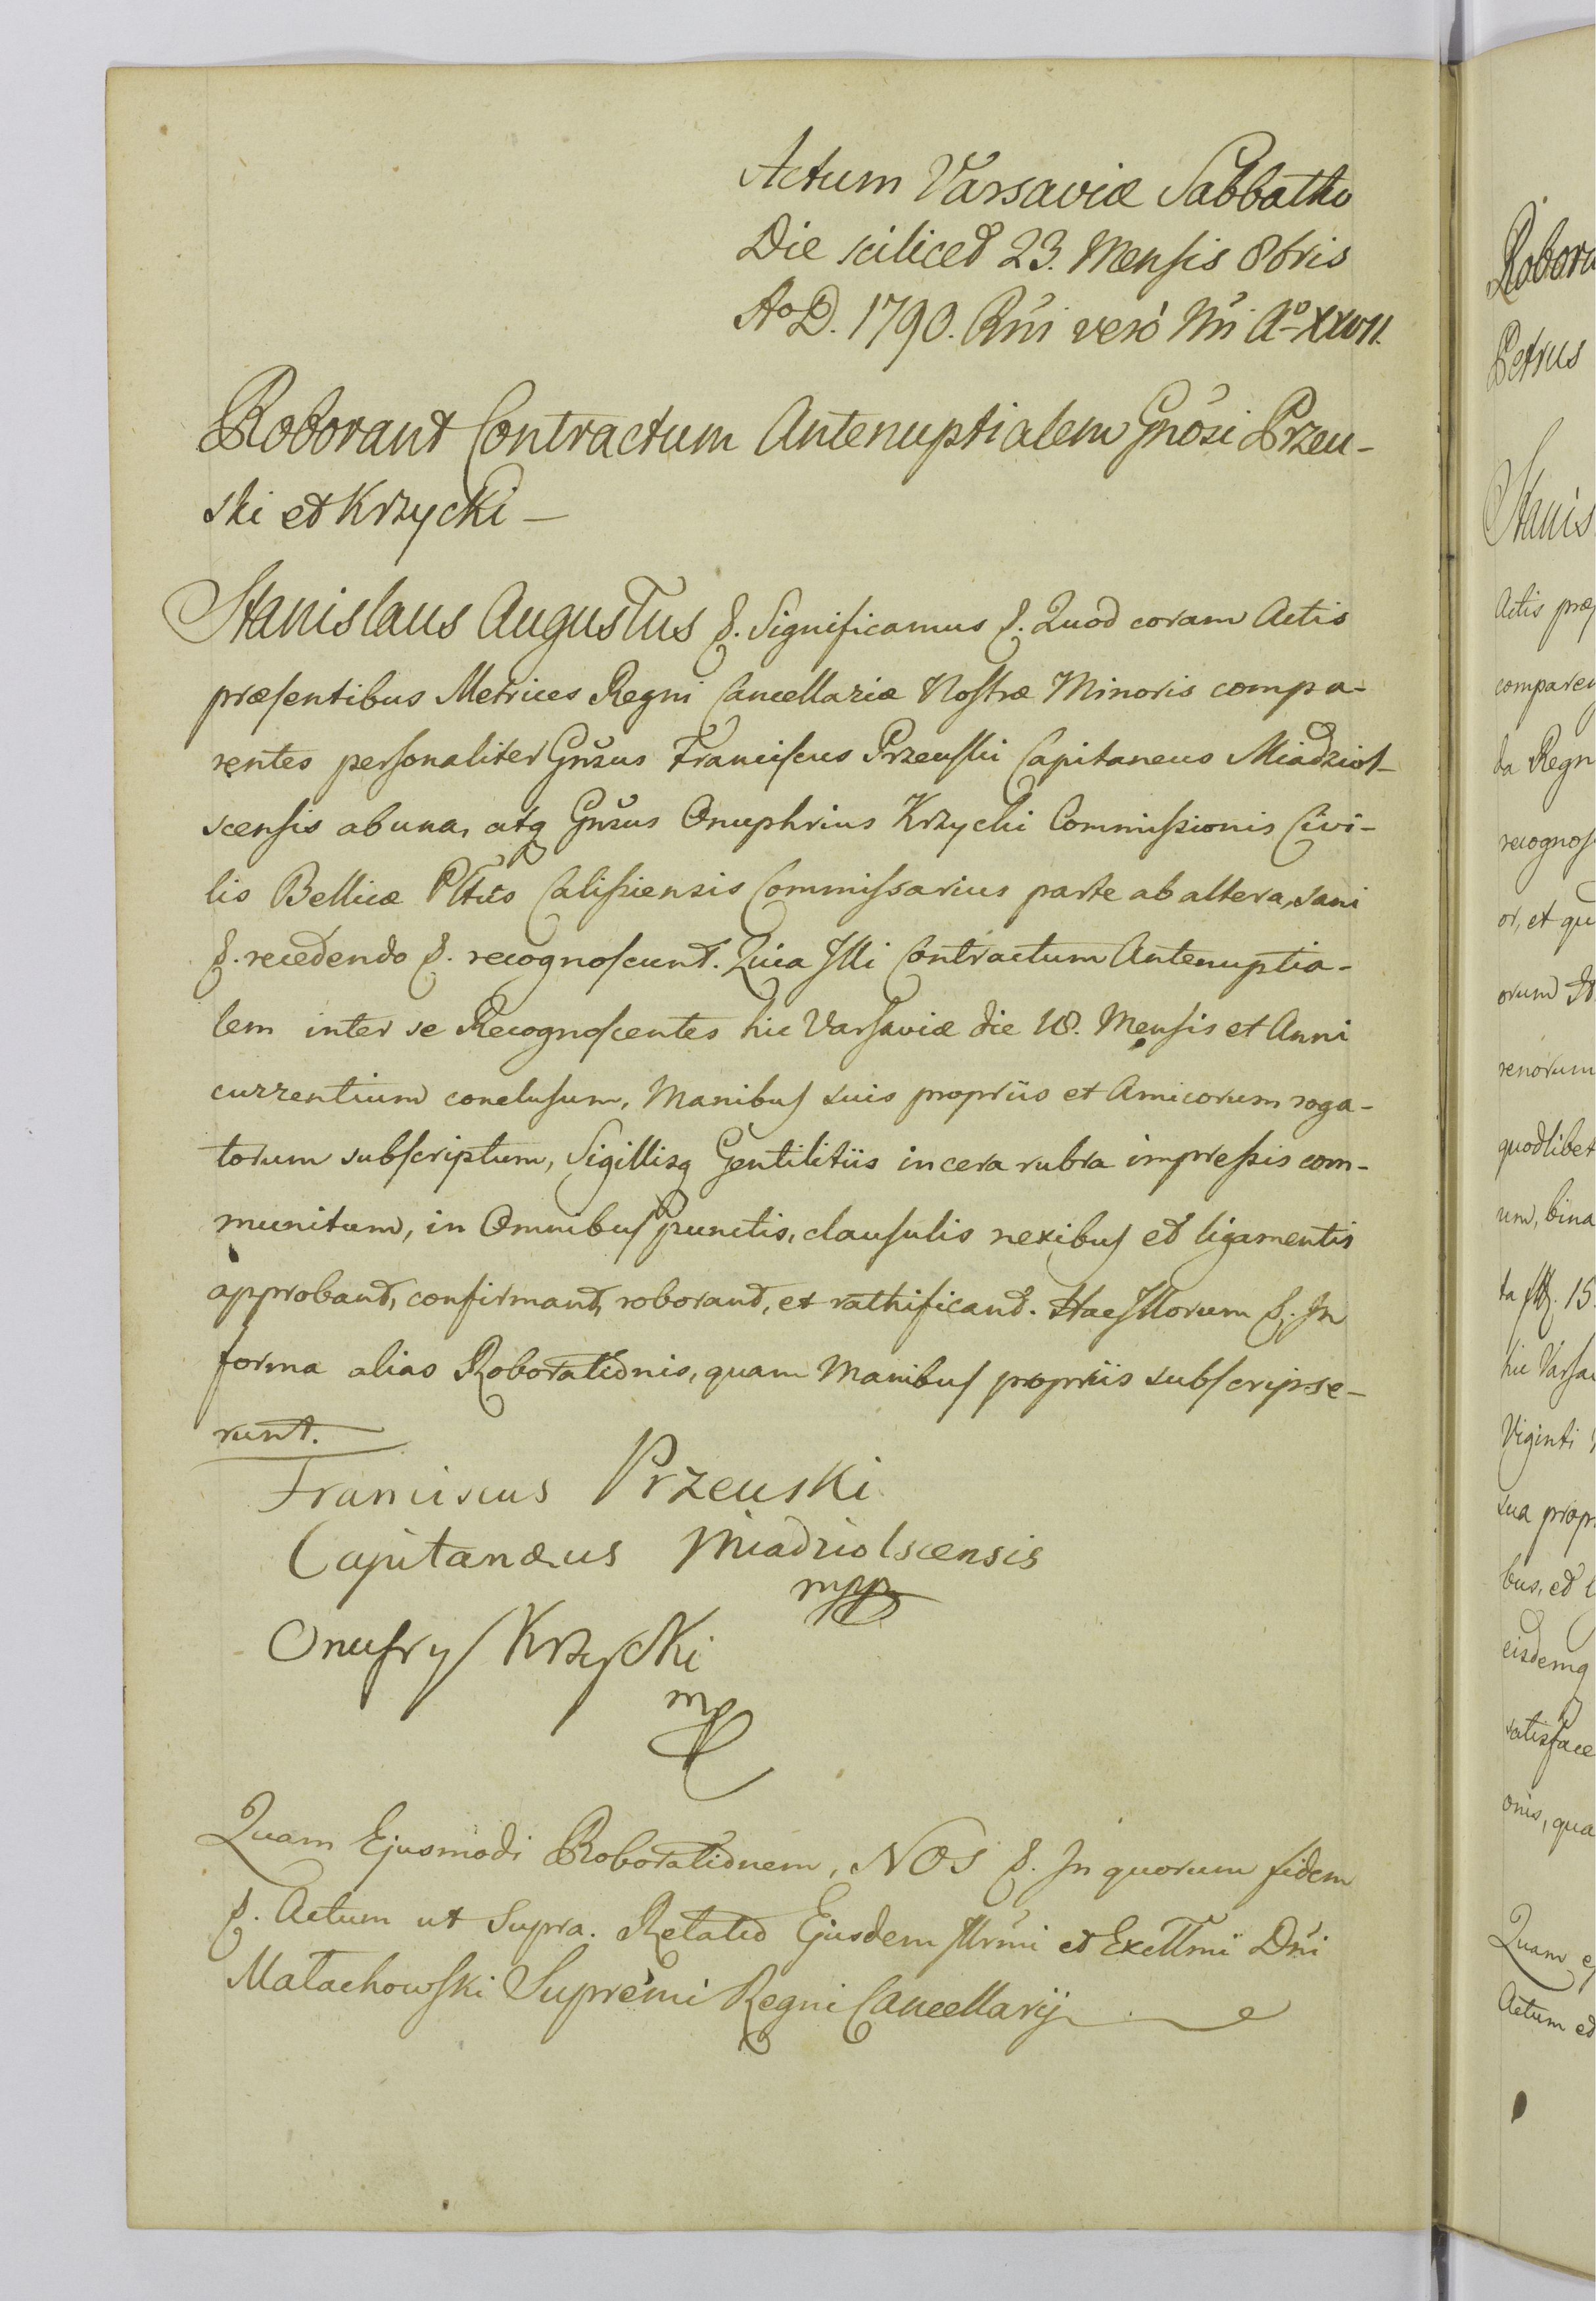 Actum Varsaviæ Sabbatho
Die scilicet 23. Mensis 8bris
AoD. 1790. Rñi verò Ñri Ao XXVII.
Roborant Contractum Antenuptialem Gñosi Przeu-
ski et Krzycki —
Stanislaus Augustus &. Significamus &. Quod coram Actis
præsentibus Metrices Regni Cancellariæ Nostræ Minoris compa-
rentes personaliter Gñsus Franciscus Przeuski Capitaneus Miadziol-
scensis ab una, atq Gñsus Onuphrius Krzycki Commissionis Civi-
lis Bellicæ Calissiensis Commissarius parte ab altera, sani
&. recedendo &. recognoscunt. Quia Illi Contractum Antenuptia-
lem inter se Recognoscentes hic Varsaviæ die 18. Mensis et Anni
currentium conclusum, Manibus suis propriis et Amicorum roga-
torum subscriptum, Sigillisq Gentilitiis in cera rubra impressis com-
munitum, in Omnibus punctis, clausulis nexibus et ligamentis
approbant, confirmant, roborant, et rathificant. Hac Illorum &. In
forma alias Roborationis, quam Manibus propriis subscripse-
runt.
Franciscus Przeuski
Capitanæus Miadziolscensis
mpp
Onufry Krzycki
mp
Quam Ejusmodi Roborationem, NOS &. In quorum fidem
&. Actum ut Supra. Relatio Ejusdem Illrmi et Excllmi Dñi
Małachowski Supremi Regni Cancellarij
Robora
Petrus
Stanis
Actis præ
comparen
da Regn
recognos
or, et qu
orum
renorum
quodlibet
um, bina
ta 15.
hic Varsa
Viginti
sua propr
bus, et l
eisdemq
satisface
onis, qua
Quam ej
Actum et